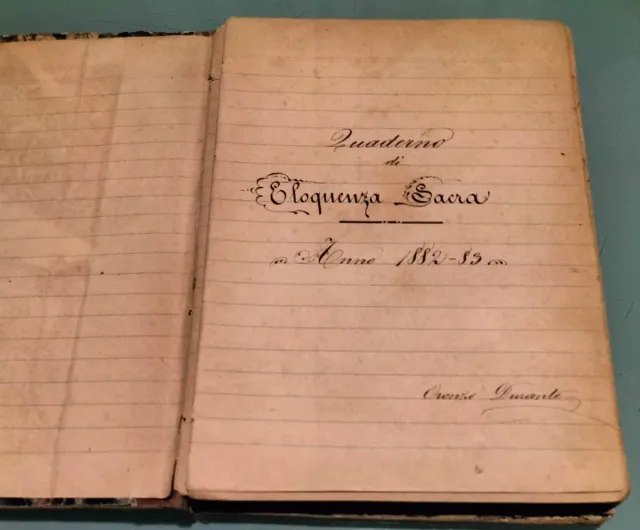 Quaderno
di
Eloquenza Sacra
Anno 1882-83
Oronzo Durante